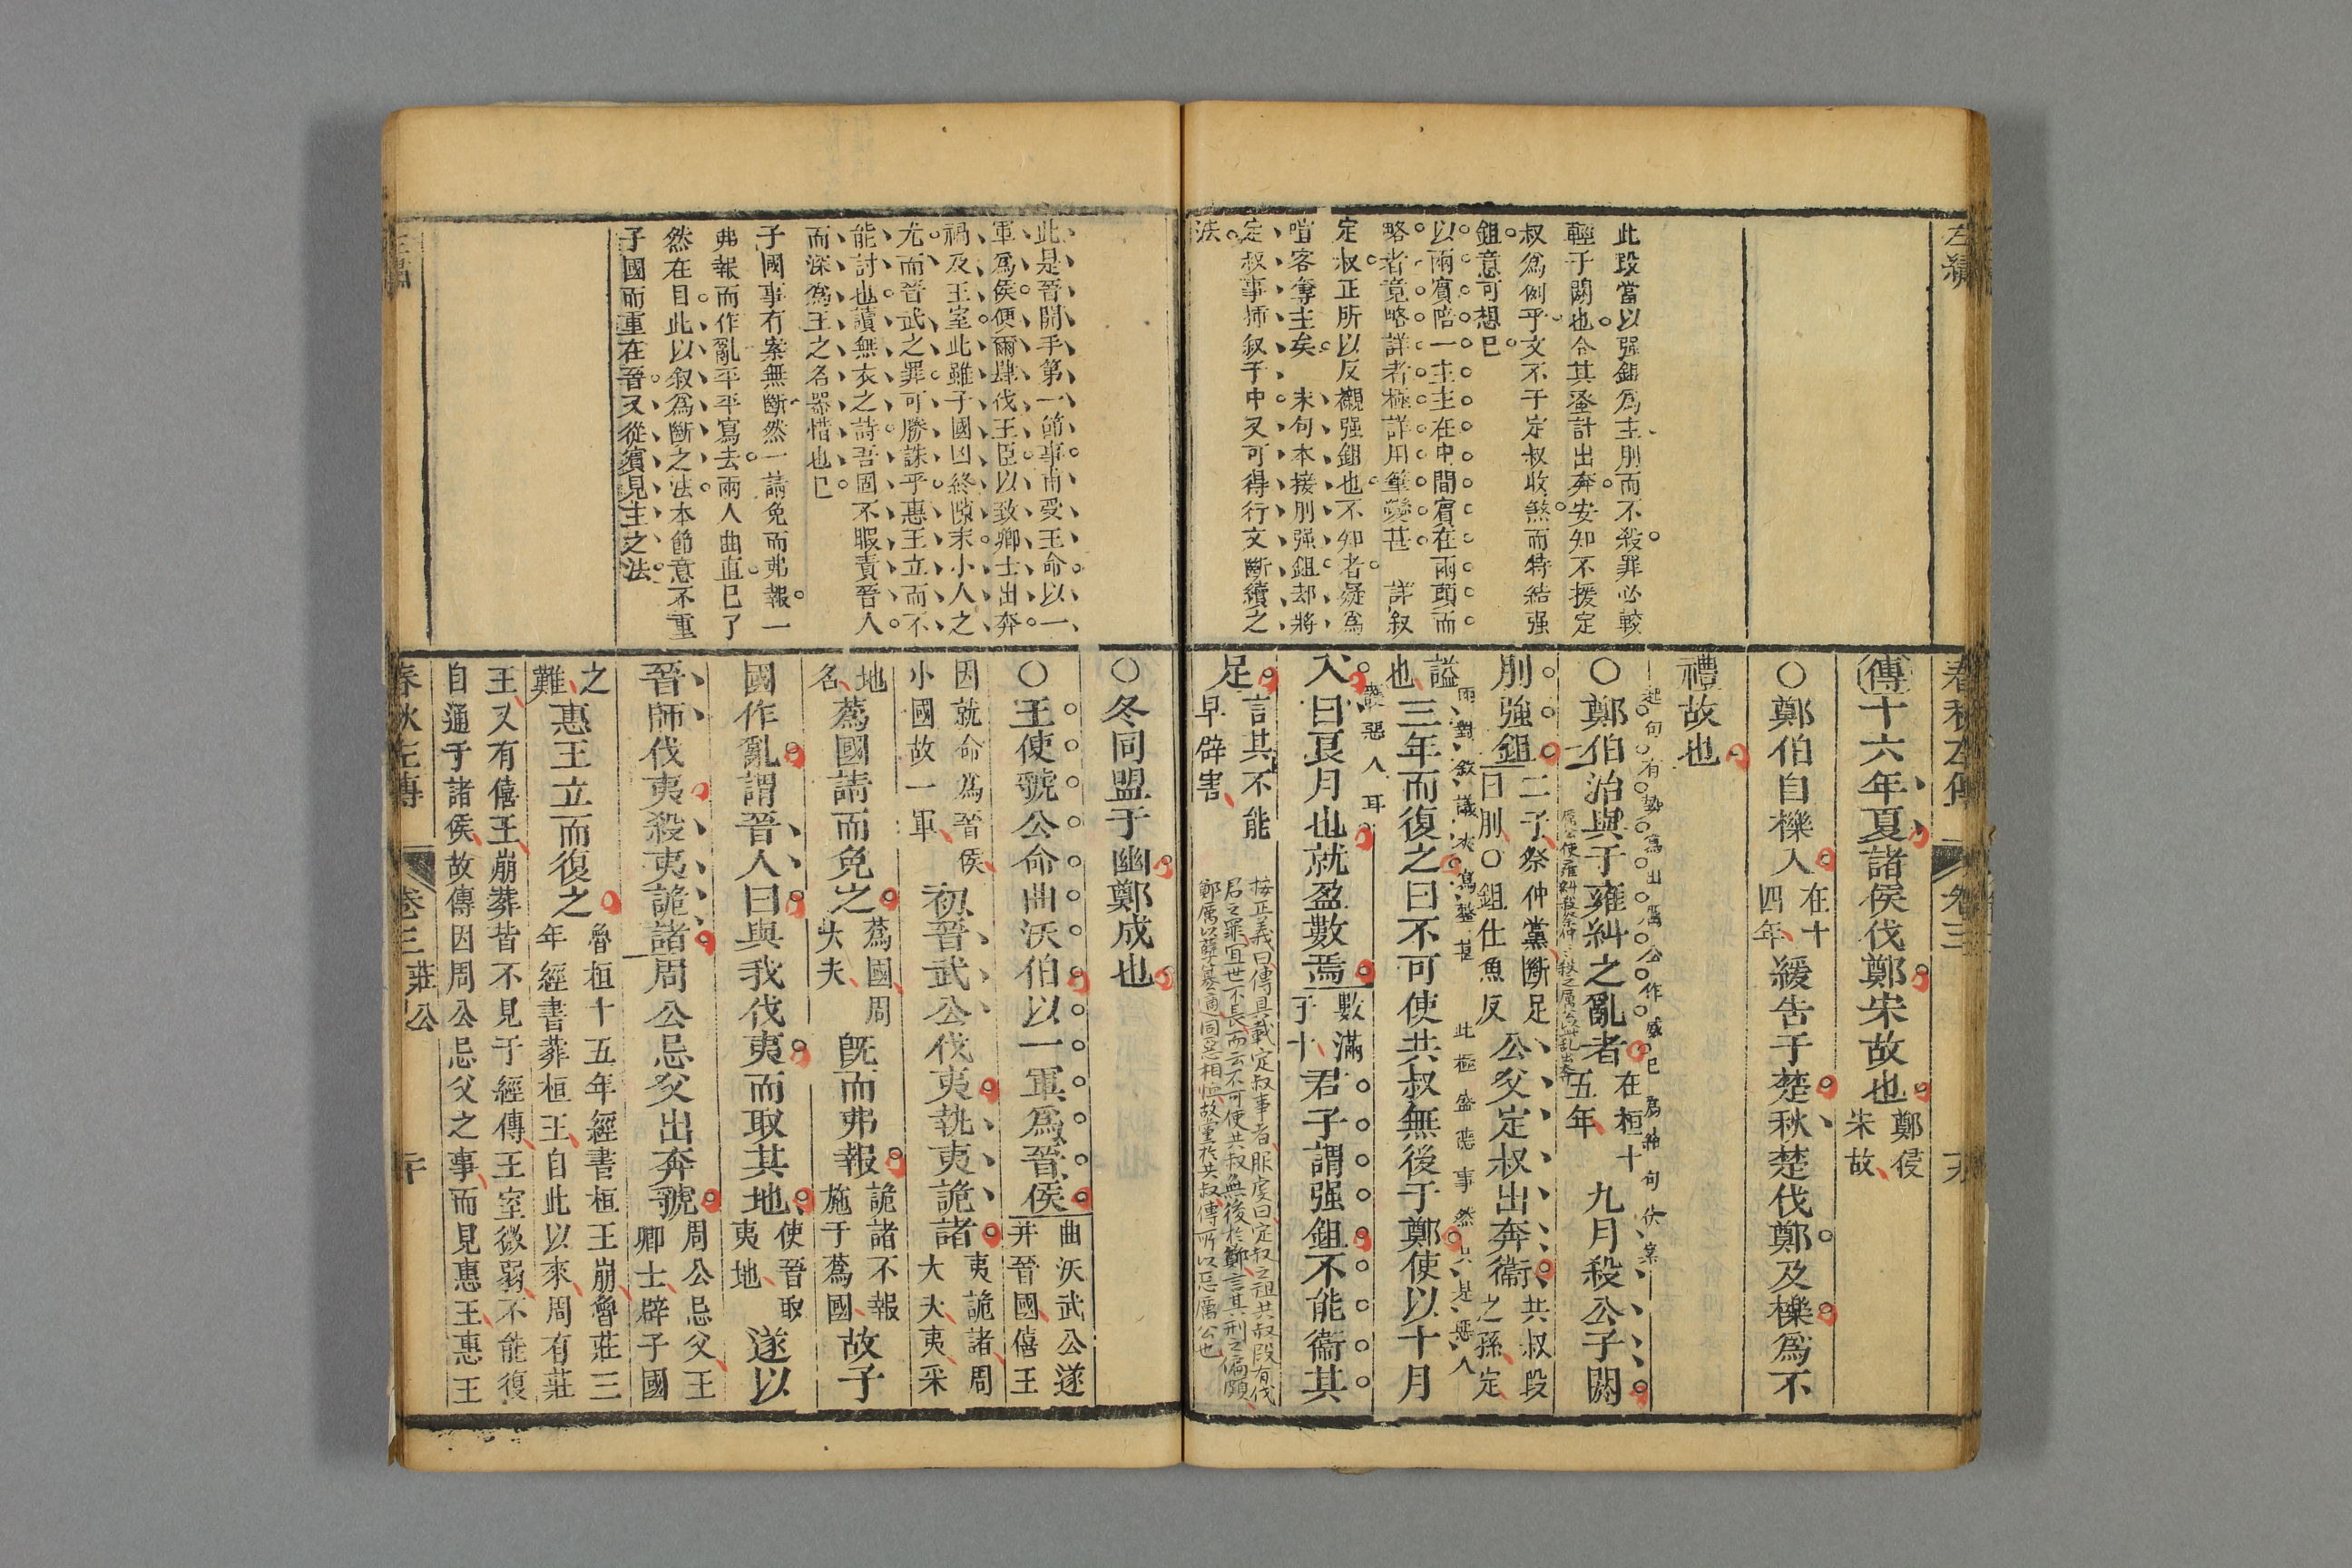 左繡
春秋左傳
卷三
此段當以强鉏爲主刖而不殺罪必較
輕于閼也合其蚤計出奔安知不援定
叔爲例乎文不于定叔收煞而特結强
鉏意可想已
以兩賓陪一主主在中間賓在兩頭而
略者竟略詳者極詳用筆變甚 詳叙
定叔正所以反襯强鉏也不知者疑爲
喧客奪主矣 末句本接刖强鉏却將
定叔事揷叙于中又可得行文斷續之
法
傳十六年夏諸侯伐鄭宋故也鄭侵
宋故
○鄭伯自櫟入在十
四年緩告于楚秋楚伐鄭及櫟爲不
禮故也
起句有勢寫出厲公作威已爲神句伏案
○鄭伯治與于雍糾之亂者在桓十
五年九月殺公子閼
刖強鉏二子祭仲黨斷足
曰刖○鉏仕魚反公父定叔出奔衞共叔段
之孫定
兩對敘議夾寫整甚 此極盛德事然只是惡人
謚
也三年而復之曰不可使共叔無後于鄭使以十月
惡人耳
入曰良月也就盈數焉數滿
于十君子謂强鉏不能衞其
足言其不能
早辟害
按正義曰傳具載定叔事者服虔曰定叔之祖共叔段有伐
君之罪宜世不長而云不可使共叔無後於鄭言其刑之偏頗
鄭厲以孽簒適同惡相恤故黨於共叔傳所以惡厲公也
此是晉開手第一節事甫受王命以一
軍爲侯便爾肆伐王臣以致卿士出奔
禍及王室此雖子國凶終隙末小人之
尤而晉武之罪可勝誅乎惠王立而不
能討也讀無衣之詩吾固不暇責晉人
而深爲王之名器惜也已
子國事有案無斷然一請免而弗報一
弗報而作亂平平寫去兩人曲直已了
然在目此以叙爲斷之法本節意不重
子國而重在晉又從賓見主之法
○冬同盟于幽鄭成也
○王使虢公命曲沃伯以一軍爲晉侯曲沃武公遂
并晉國僖王
因就命爲晉侯
小國故一軍初晉武公伐夷執夷詭諸夷詭諸周
大夫夷采
地
名蒍國請而免之蒍國周
大夫既而弗報詭諸不報
施于蒍國故子
國作亂謂晉人曰與我伐夷而取其地使晉取
夷地遂以
晉師伐夷殺夷詭諸周公忌父出奔虢周公忌父王
卿士辟子國
之
難惠王立而復之魯桓十五年經書桓王崩魯莊三
年經書葬桓王自此以來周有莊
王又有僖王崩葬皆不見于經傳王室微弱不能復
自通于諸侯故傳因周公忌父之事而見惠王惠王
春秋左傳
卷三
莊公
二十